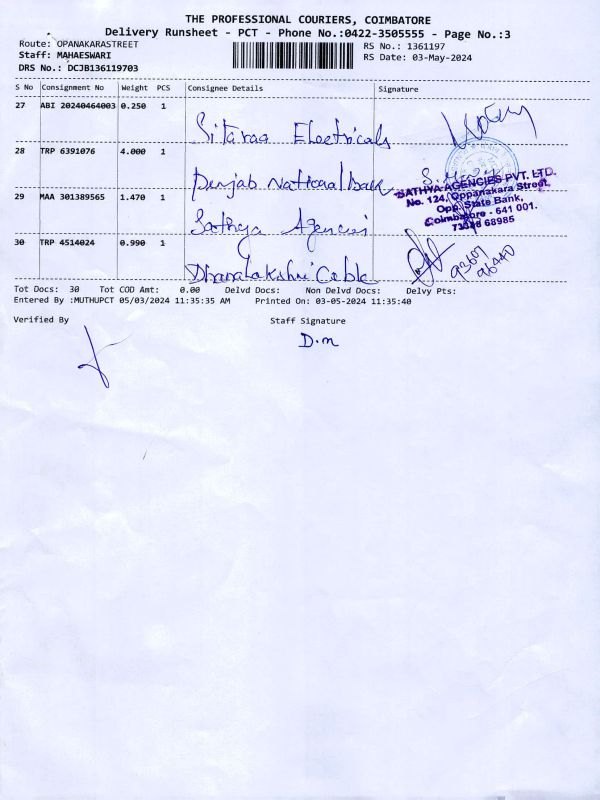 THE PROFESSIONAL COURIERS, COIMBATORE
Delivery Runsheet - PCT - Phone No.:0422-3505555 - Page No.:3
Route: OPANAKARASTREET
Staff: MAHAESWARI
DRS No.: DCJB136119703
RS No.: 1361197
RS Date: 03-May-2024
S No Consignment No Weight PCS Consignee Details Signature
27 ABI 20240464003 0.250 1
Sitaraa Electricals
28 TRP 6391076 4.000 1
Punjab National bank
29 MAA 301389565 1.470 1
Sathya Agencies
SATHYA AGENCIES PVT. LTD.
No. 124, Oppanakara Street,
Opp. State Bank,
Coimbatore - 641 001.
73388 68985
30 TRP 4514024 0.990 1
Dhanalakshmi Cable
93607
96440
Tot Docs: 30 Tot COD Amt: 0.00 Delvd Docs: Non Delvd Docs: Delvy Pts:
Entered By :MUTHUPCT 05/03/2024 11:35:35 AM Printed On: 03-05-2024 11:35:40
Verified By Staff Signature
D.m